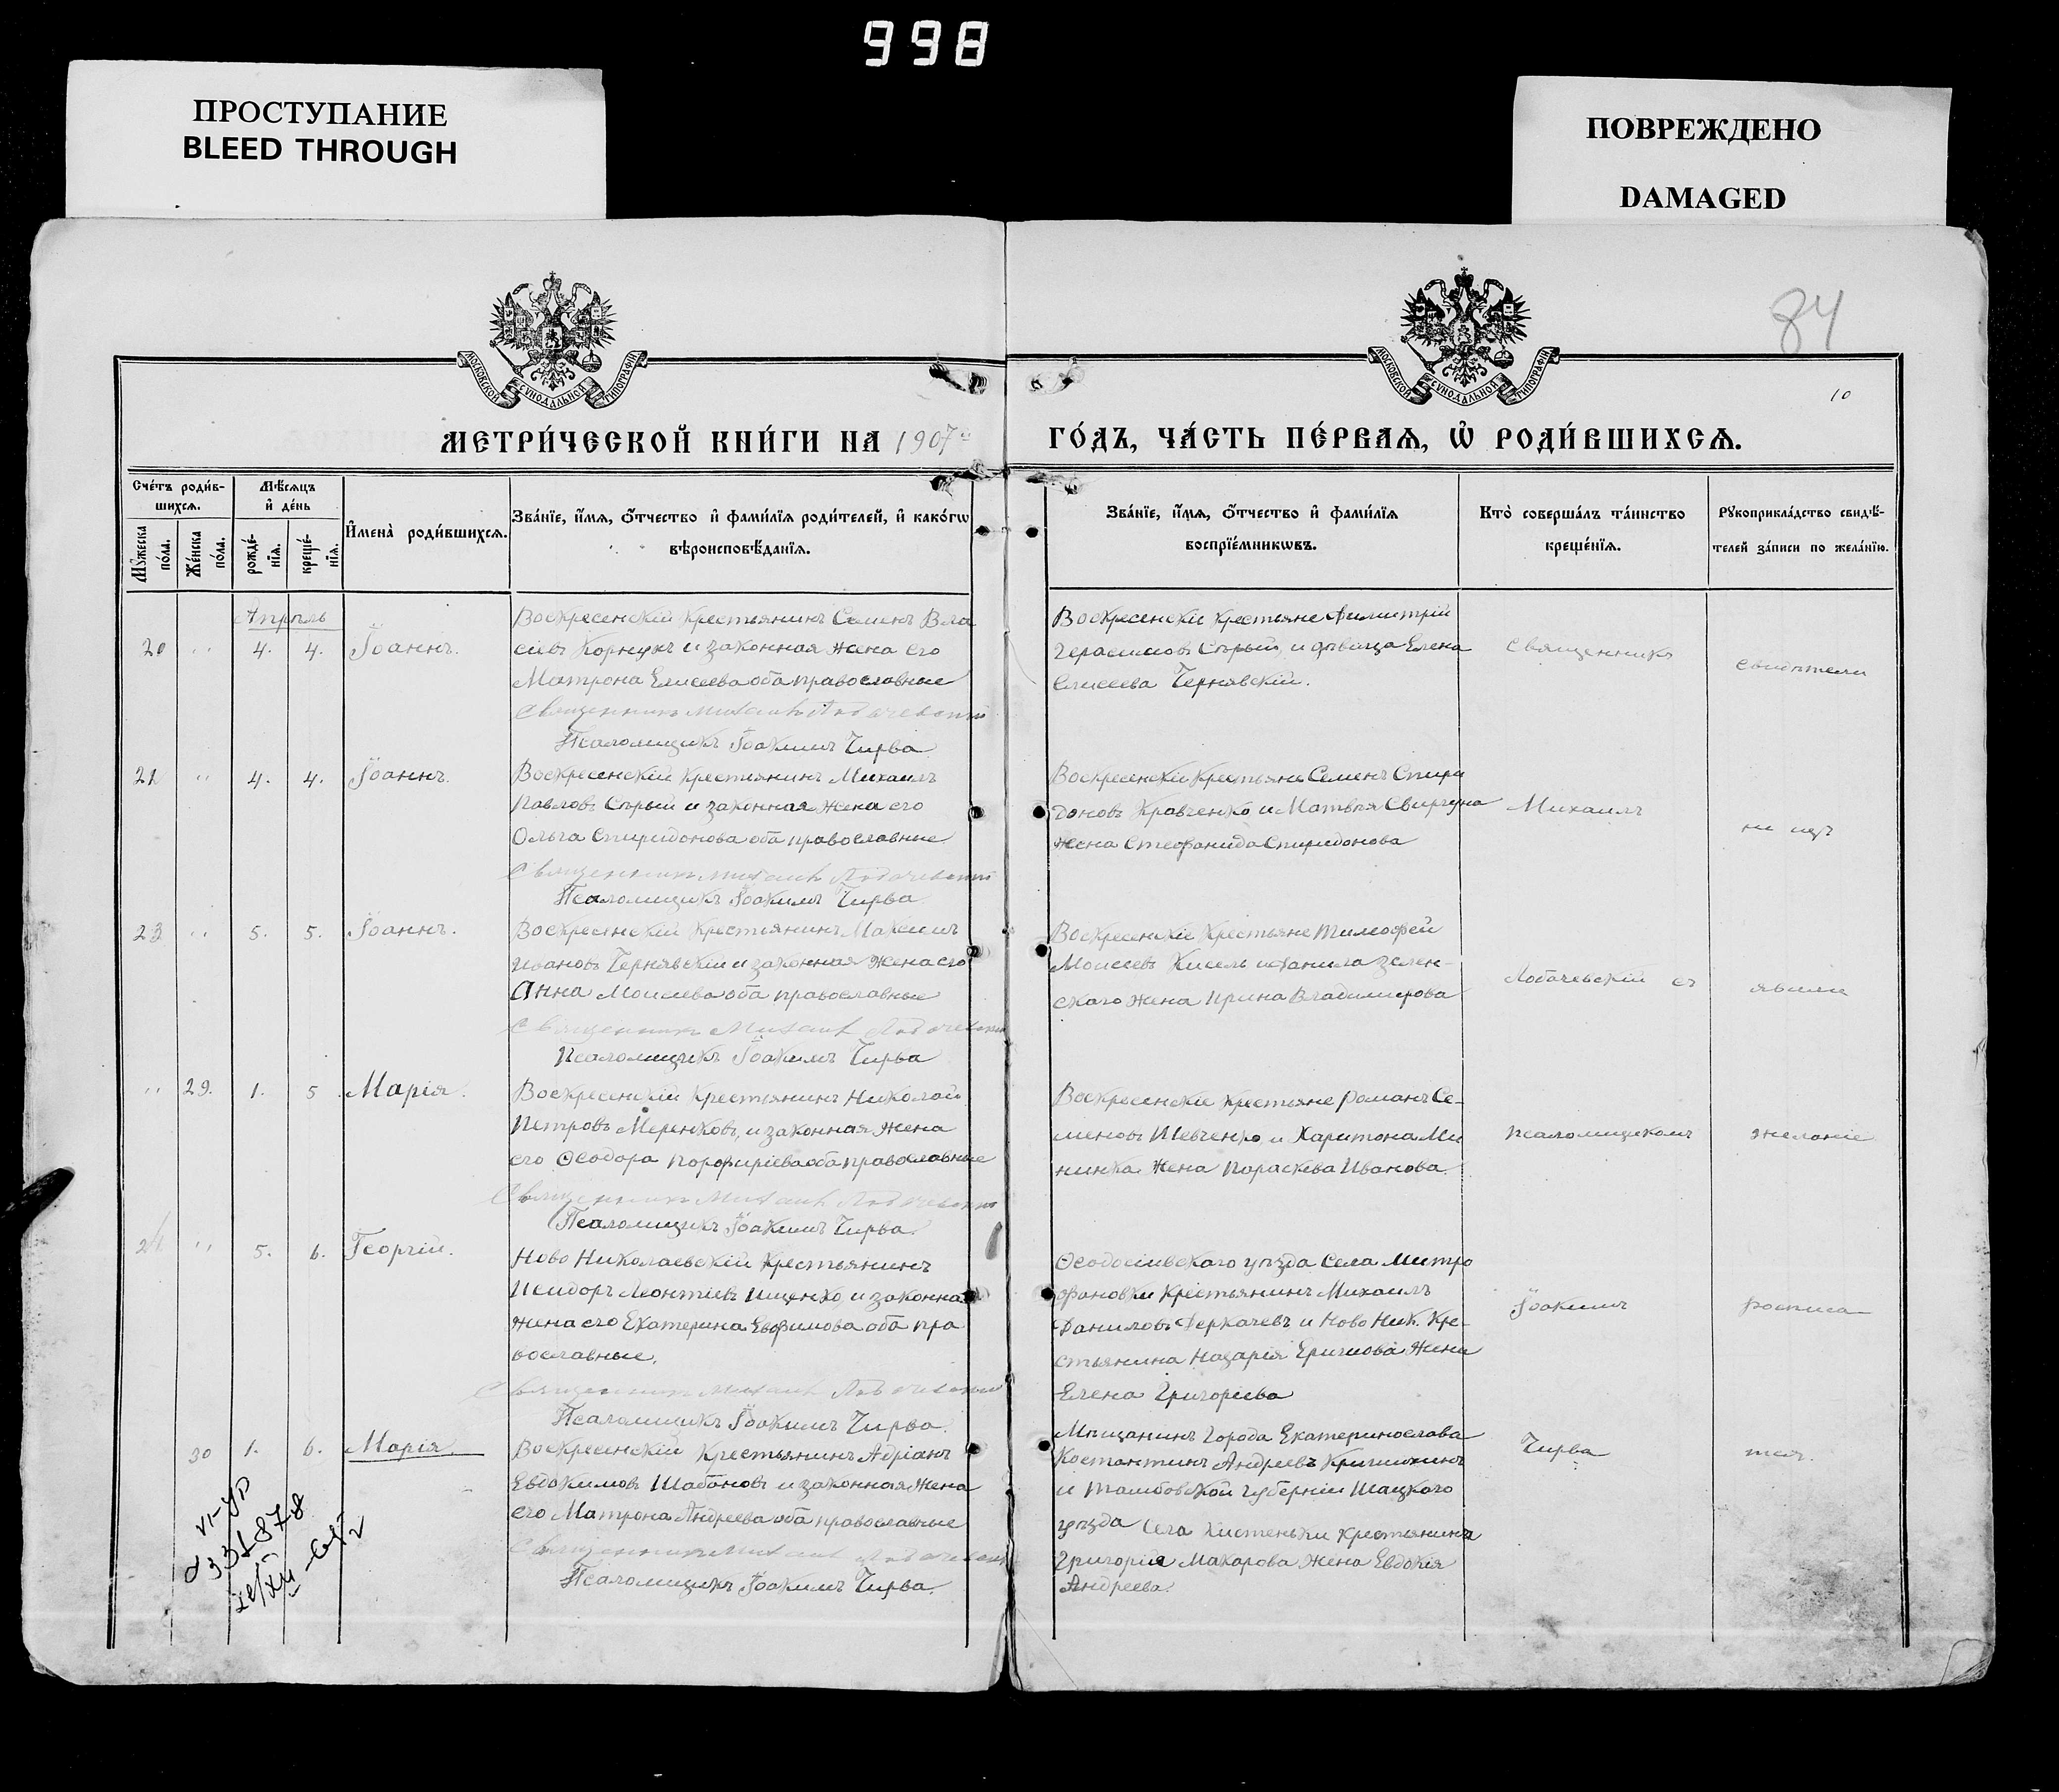 998
ПРОСТУПАНИЕ
BLEED THROUGH
ПОВРЕЖДЕНО
DAMAGED
84
10
МОСКОВСКОЙ СѴНОДАЛЬНОЙ ТИПОГРАФІИ
МОСКОВСКОЙ СѴНОДАЛЬНОЙ ТИПОГРАФІИ
МЕТРИ́ЧЕСКОЙ КНИ́ГИ НА 1907
ГО́ДЪ, ЧА́СТЬ ПЕ́РВАѦ, Ѡ҆ РОДИ́ВШИХСѦ.
Сче́тъ роди́в-
шихсѧ.
Мѣ́сѧцъ
и҆ де́нь
Мꙋ́жеска
по́ла.
Же́нска
по́ла.
рожде́-
нїѧ.
креще́-
нїѧ.
И҆мена̀ роди́вшихсѧ.
Зва́нїе, и҆́мѧ, ѻ҆́тчество и҆ фами́лїѧ роди́телей, и҆ како́гѡ
вѣроисповѣ́данїѧ.
Зва́нїе, и҆́мѧ, ѻ҆́тчество и҆ фами́лїѧ
воспрїе́мникѡвъ.
Кто̀ соверша́лъ та́инство
креще́нїѧ.
Рꙋкоприкла́дство свидѣ́-
телей за́писи по жела́нїю.
Апрѣль
20 " 4. 4. Іоаннъ.
Воскресенскій крестьянинъ Семенъ Вла
сіевъ Корнукъ и законная жена его
Матрона Елисеева оба православные
Священникъ Михаилъ Лобачевскій
Псаломщикъ Іоакимъ Чирва
Воскресенскіе крестьяне Димитрій
Герасимовъ Сѣрый и дѣвица Елена
Елисеева Чернявскій.
Священникъ
свидѣтели
21 " 4. 4. Іоаннъ.
Воскресенскій крестьянинъ Михаилъ
Павловъ Сѣрый и законная жена его
Ольга Спиридонова оба православные
Священникъ Михаилъ Лобачевскій
Псаломщикъ Іоакимъ Чирва
Воскресенскіе крестьяне Семенъ Спири
доновъ Кравченко и Матвѣя Свиргуна
жена Стефанида Спиридонова
Михаилъ
не изъ
23 " 5. 5. Іоаннъ.
Воскресенскій крестьянинъ Максимъ
Ивановъ Чернявскій и законная жена его
Анна Моисеева оба православные
Священникъ Михаилъ Лобачевскій
Псаломщикъ Іоакимъ Чирва
Воскресенскіе крестьяне Тимофей
Моисеевъ Кисель и Данила Зелен-
скаго жена Ирина Владимирова
Лобачевскій съ
явили
" 29. 1. 5 Марія.
Воскресенскій крестьянинъ Николай
Петровъ Меренковъ, и законная жена
его Ѳеодора Порфиріева оба православные
Священникъ Михаилъ Лобачевскій
Псаломщикъ Іоакимъ Чирва.
Воскресенскіе крестьяне Романъ Се-
меновъ Шевченко и Харитона Ми
нинка жена Параскева Иванова.
псаломщикомъ
желаніе
24 " 5. 6. Георгій.
Ново Николаевскій крестьянинъ
Исидоръ Леонтіевъ Ищенко, и законная
жена его Екатерина Евфимова оба пра
вославные.
Священникъ Михаилъ Лобачевскій
Псаломщикъ Іоакимъ Чирва.
Ѳеодосіевскаго уѣзда Села Митро
фановки крестьянинъ Михаилъ
Даниловъ Деркачевъ и Ново Ник. кре-
стьянина Назарія жена
Елена Григоріева
Іоакимъ
росписа
30 1. 6. Марія
Воскресенскій крестьянинъ Адріанъ
Евдокимовъ Шабановъ и законная жена
его Матрона Андреева оба православные
Священникъ Михаилъ Лобачевскій
Псаломщикъ Іоакимъ Чирва.
Мѣщанинъ Города Екатеринослава
Костантинъ Андреевъ
и Тамбовской губерніи Шацкого
уѣзда Села Кистеньки крестьянина
Григорія Макарова жена Евдокія
Андреева.
Чирва
тся.